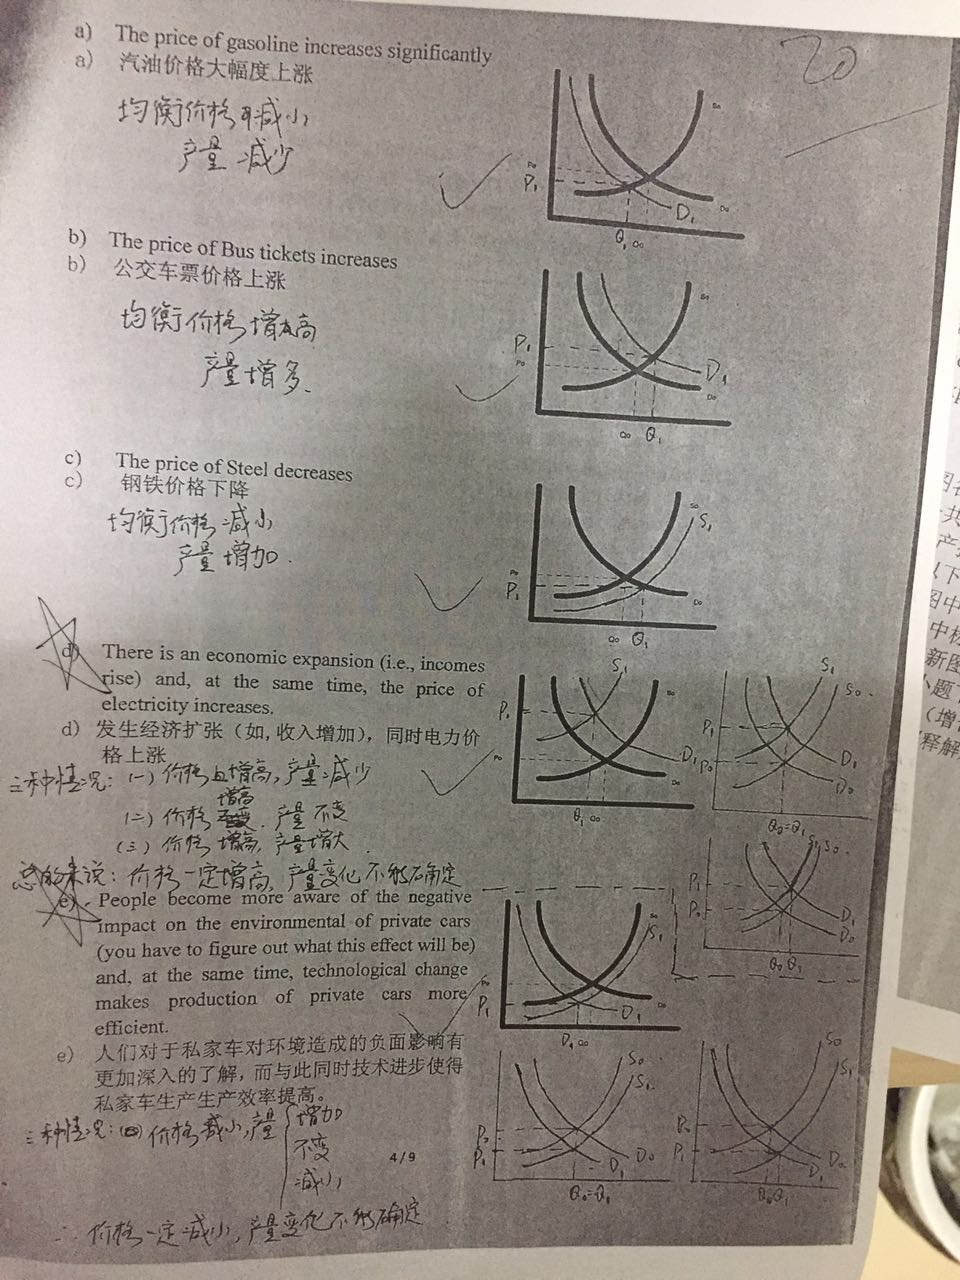 20
a) The price of gasoline increases significantly
a) 汽油价格大幅度上涨
均衡价格减小
产量减少
P₁
D₁
Q₁
b) The price of Bus tickets increases
b) 公交车票价格上涨
均衡价格增高
产量增多.
P₁
D₁
Q₁
c) The price of Steel decreases
c) 钢铁价格下降
均衡价格减小
产量增加.
S₁
P₁
Q₁
d) There is an economic expansion (i.e., incomes
rise) and, at the same time, the price of
electricity increases.
d) 发生经济扩张（如, 收入增加），同时电力价
格上涨
三种情况: (一) 价格增高, 产量减少
(二) 价格增高. 产量不变
(三) 价格增高, 产量增大.
总的来说: 价格一定增高, 产量变化不能确定
S₁
P₁
D₁
Q₁
S₁
S₀
P₁
P₀
D₁
D₀
Q₀=Q₁
S₁ S₀
P₁
P₀
D₁
D₀
Q₀ Q₁
e) People become more aware of the negative
impact on the environmental of private cars
(you have to figure out what this effect will be)
and, at the same time, technological change
makes production of private cars more
efficient.
e) 人们对于私家车对环境造成的负面影响有
更加深入的了解，而与此同时技术进步使得
私家车生产生产效率提高。
三种情况: 价格减小, 产量
增加
不变
减小
∴ 价格一定减小, 产量变化不能确定
S₁
P₁
D₁
S₀
S₁
P₀
P₁
D₁ D₀
Q₀=Q₁
S₀
S₁
P₀
P₁
D₁
D₀
Q₀Q₁
4 / 9